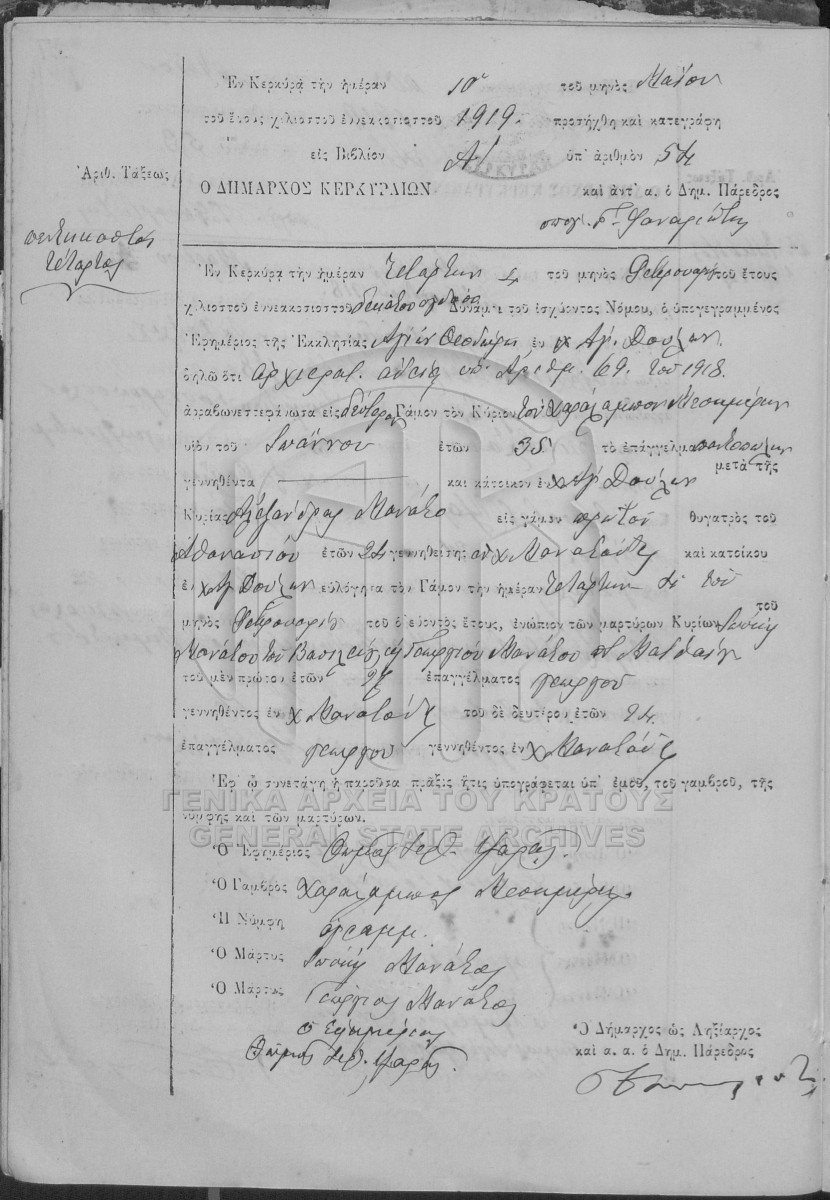 Ἐν Κερκύρᾳ τὴν ἡμέραν 10 τοῦ μηνὸς Μαΐου
τοῦ ἔτους χιλιοστοῦ ἐννεακοσιοστοῦ 1919. προσήχθη καὶ κατεγράφη
εἰς Βιβλίον Α' ὑπ' ἀριθμὸν 54
Ἀριθ. Τάξεως
Ο ΔΗΜΑΡΧΟΣ ΚΕΡΚΥΡΑΙΩΝ καὶ ἀντ' α. ὁ Δημ. Πάρεδρος
πεντηκοστὸς
τέταρτος
Ἐν Κερκύρᾳ τὴν ἡμέραν τετάρτην 4 τοῦ μηνὸς Φεβρουαρίου τοῦ ἔτους
χιλιοστοῦ ἐννεακοσιοστοῦ δεκάτου Δυνάμει τοῦ ἰσχύοντος Νόμου, ὁ ὑπογεγραμμένος
Ἐφημέριος τῆς Ἐκκλησίας Ἁγίων Θεοδώρων ἐν χ Ἁγ. Δούλων
δηλῶ ὅτι ἀρχιερατ. ἀδείᾳ ὑπ. Ἀριθμ. 69. τοῦ 1918.
ἀρραβωνεστεφάνωσα εἰς δεύτερον Γάμον τὸν Κύριον τὸν Χαράλαμπον Μεσημέρην
υἱὸν τοῦ Ἰωάννου ἐτῶν 35 τὸ ἐπάγγελμα
γεννηθέντα καὶ κάτοικον ἐν χ Ἁγ Δούλων μετὰ τῆς
Κυρίας Ἀλεξάνδρας Μανάτο εἰς γάμον πρῶτον θυγατρὸς τοῦ
Ἀθανασίου ἐτῶν 24 γεννηθείσης ἐν χ Μανατάδες καὶ κατοίκου
ἐν χ Ἁγ Δούλων εὐλόγησα τὸν Γάμον τὴν ἡμέραν τετάρτην 4 τοῦ
μηνὸς Φεβρουαρίου τοῦ ὁδεύοντος ἔτους, ἐνώπιον τῶν μαρτύρων Κυρίων τοῦ
Μανάτου τοῦ Βασιλείου Γεωργίου Μανάτου
τοῦ μὲν πρώτου ἐτῶν ἐπαγγέλματος γεωργοῦ
γεννηθέντος ἐν χ Μανατάδες τοῦ δὲ δευτέρου ἐτῶν 24.
ἐπαγγέλματος γεωργοῦ γεννηθέντος ἐν χ Μανατάδες
Ἐφ' ᾧ συνετάγη ἡ παροῦσα πρᾶξις ἥτις ὑπογράφεται ὑπ' ἐμοῦ, τοῦ γαμβροῦ, τῆς
νύμφης καὶ τῶν μαρτύρων.
ΓΕΝΙΚΑ ΑΡΧΕΙΑ ΤΟΥ ΚΡΑΤΟΥΣ
GENERAL STATE ARCHIVES
Ὁ Ἐφημέριος Θωμᾶς
Ὁ Γαμβρὸς Χαράλαμπος Μεσημέρης
Ἡ Νύμφη ἀγραμμ.
Ὁ Μάρτυς Μανάτος
Ὁ Μάρτυς Γεώργιος Μανάτος
ὁ Ἐφημέριος
Θωμᾶς
Ὁ Δήμαρχος ὡς Ληξίαρχος
καὶ α. α. ὁ Δημ. Πάρεδρος